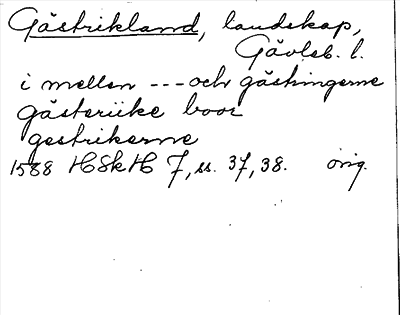 Gästrikland, landskap,
Gävleb. l.
i mellan --- och gästringerne
gästeriike boor
gestrikerne
1588 HSkH 7, ss. 37, 38. orig.